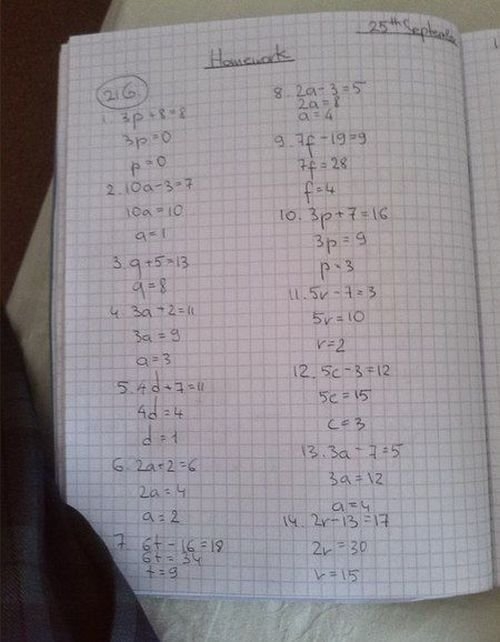 25th September
Homework
2.6.
1. 3p + 8 = 8
3p = 0
p = 0
2. 10a - 3 = 7
10a = 10
a = 1
3. q + 5 = 13
q = 8
4. 3a + 2 = 11
3a = 9
a = 3
5. 4d + 7 = 11
4d = 4
d = 1
6. 2a + 2 = 6
2a = 4
a = 2
7. 6t - 16 = 18
6t = 34
t = 9
8. 2a - 3 = 5
2a = 8
a = 4
9. 7f - 19 = 9
7f = 28
f = 4
10. 3p + 7 = 16
3p = 9
p = 3
11. 5r - 7 = 3
5r = 10
r = 2
12. 5c - 3 = 12
5c = 15
c = 3
13. 3a - 7 = 5
3a = 12
a = 4
14. 2r - 13 = 17
2r = 30
r = 15